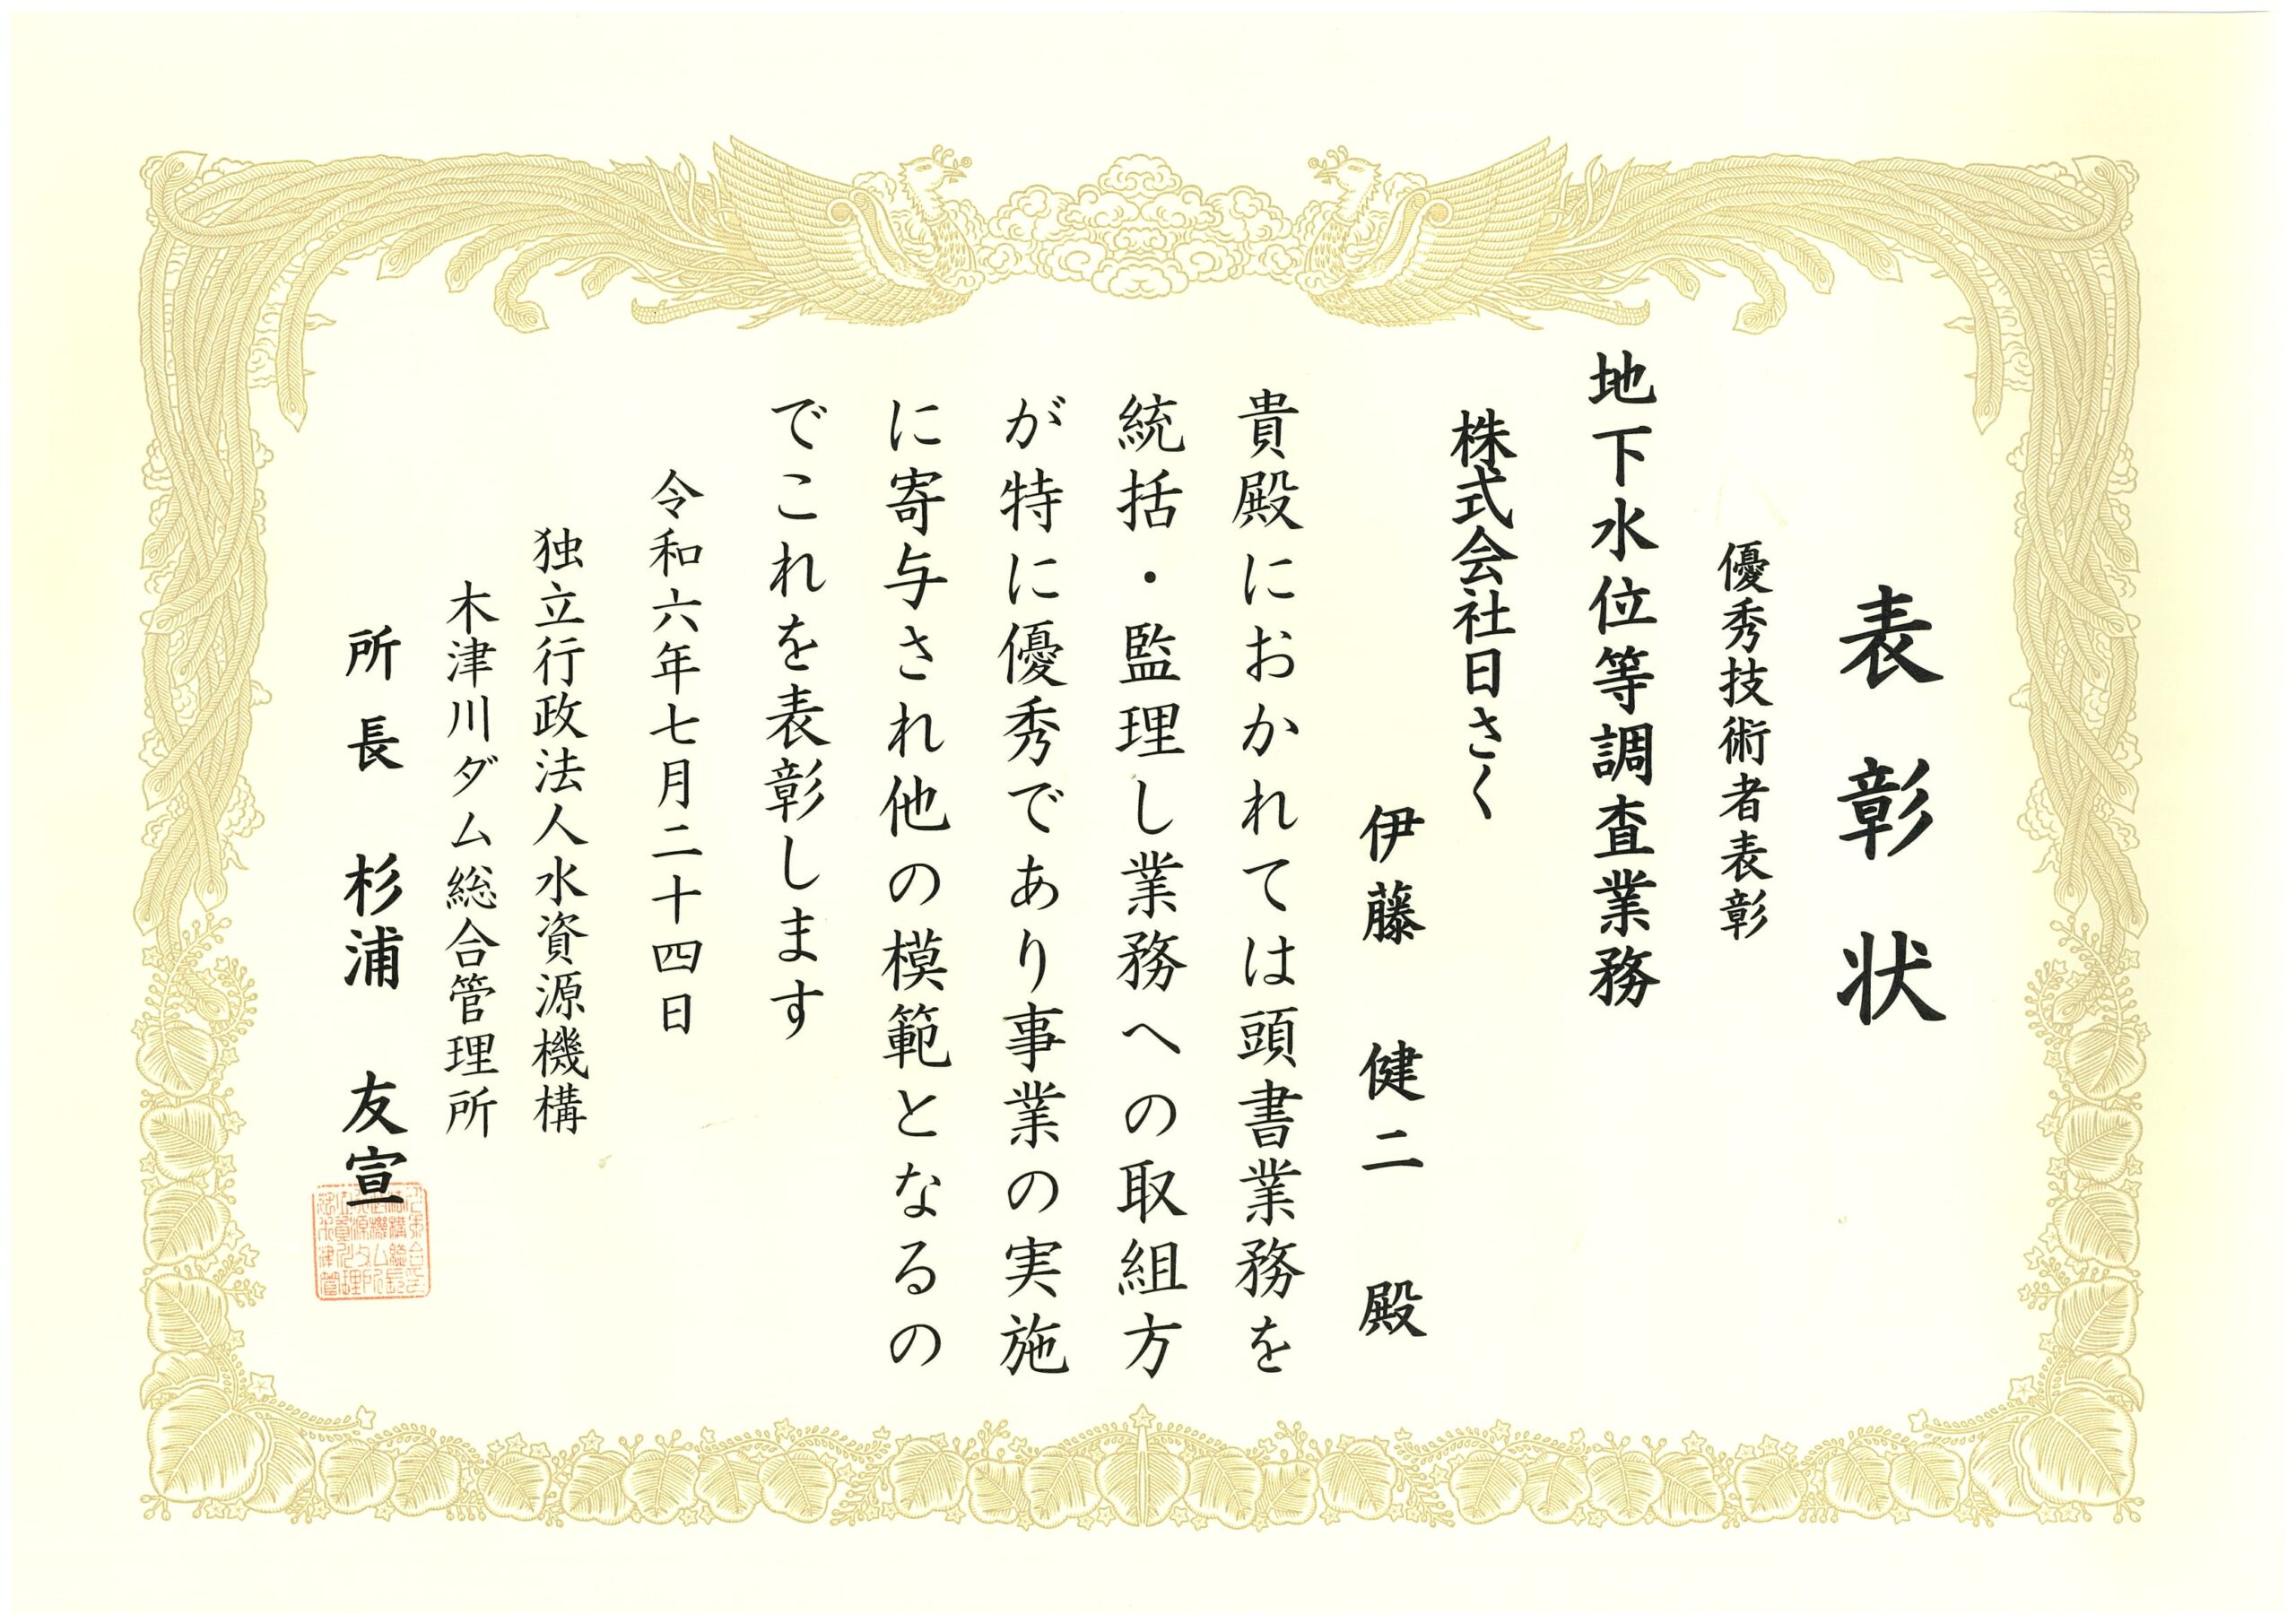 表彰状
優秀技術者表彰
地下水位等調査業務
株式会社日さく
伊藤 健二 殿
貴殿におかれては頭書業務を
統括・監理し業務への取組方
が特に優秀であり事業の実施
に寄与され他の模範となるの
でこれを表彰します
令和六年七月二十四日
独立行政法人水資源機構
木津川ダム総合管理所
所長 杉浦 友宣